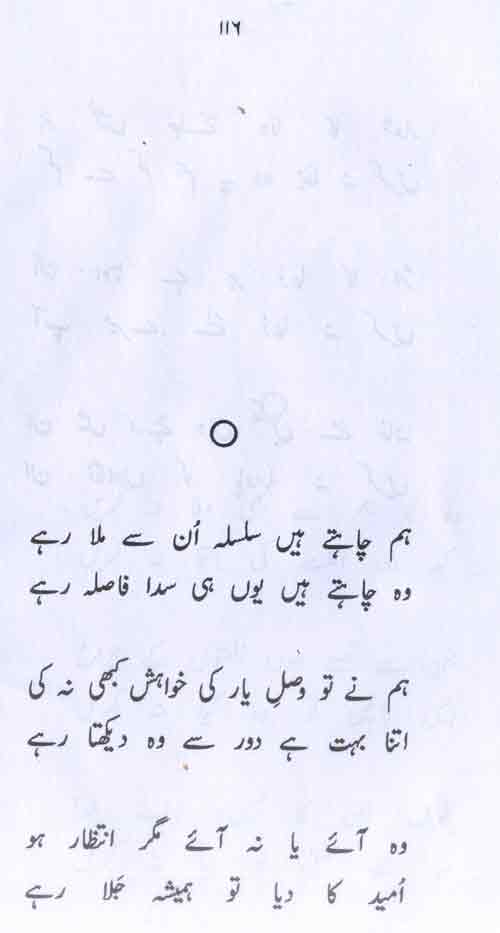 ۱۱۶
ہم چاہتے ہیں سلسلہ اُن سے ملا رہے
وہ چاہتے ہیں یوں ہی سدا فاصلہ رہے
ہم نے تو وصلِ یار کی خواہش کبھی نہ کی
اتنا بہت ہے دور سے وہ دیکھتا رہے
وہ آئے یا نہ آئے مگر انتظار ہو
اُمید کا دیا تو ہمیشہ جَلا رہے